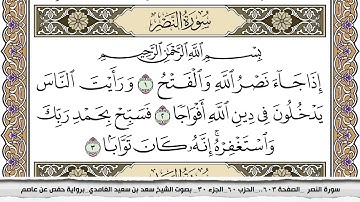 سُورَةُ النَّصۡرِ
بِسۡمِ ٱللَّهِ ٱلرَّحۡمَٰنِ ٱلرَّحِيمِ
إِذَا جَآءَ نَصۡرُ ٱللَّهِ وَٱلۡفَتۡحُ ١ وَرَأَيۡتَ ٱلنَّاسَ
يَدۡخُلُونَ فِي دِينِ ٱللَّهِ أَفۡوَاجٗا ٢ فَسَبِّحۡ بِحَمۡدِ رَبِّكَ
وَٱسۡتَغۡفِرۡهُۚ إِنَّهُۥ كَانَ تَوَّابَۢا ٣
سورة النصر _الصفحة ٦٠٣... الحزب ٦٠_الجزء ٣٠_ بصوت الشيخ سعد بن سعيد الغامدي_برواية حفص عن عاصم